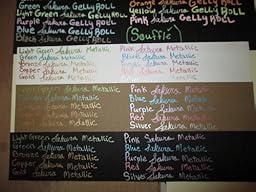 Green Sakura Gelly Roll
Light Green Sakura Gelly Roll
Purple Sakura Gelly Roll
Blue Sakura Gelly Roll
Black Sakura Gelly Roll
Orange Sakura Gelly Roll
Yellow Sakura Gelly Roll
Pink Sakura Gelly Roll
(Soufflé)
Light Green Sakura Metallic
Green Sakura Metallic
Bronze Sakura Metallic
Copper Sakura Metallic
Gold Sakura Metallic
Pink Sakura Metallic
Blue Sakura Metallic
Purple Sakura Metallic
Red Sakura Metallic
Silver Sakura Metallic
Light Green Sakura Metallic
Green Sakura Metallic
Bronze Sakura Metallic
Copper Sakura Metallic
Gold Sakura Metallic
Pink Sakura Metallic
Blue Sakura Metallic
Purple Sakura Metallic
Red Sakura Metallic
Silver Sakura Metallic
Light Green Sakura Metallic
Green Sakura Metallic
Bronze Sakura Metallic
Copper Sakura Metallic
Gold Sakura Metallic
Pink Sakura Metallic
Blue Sakura Metallic
Purple Sakura Metallic
Red Sakura Metallic
Silver Sakura Metallic